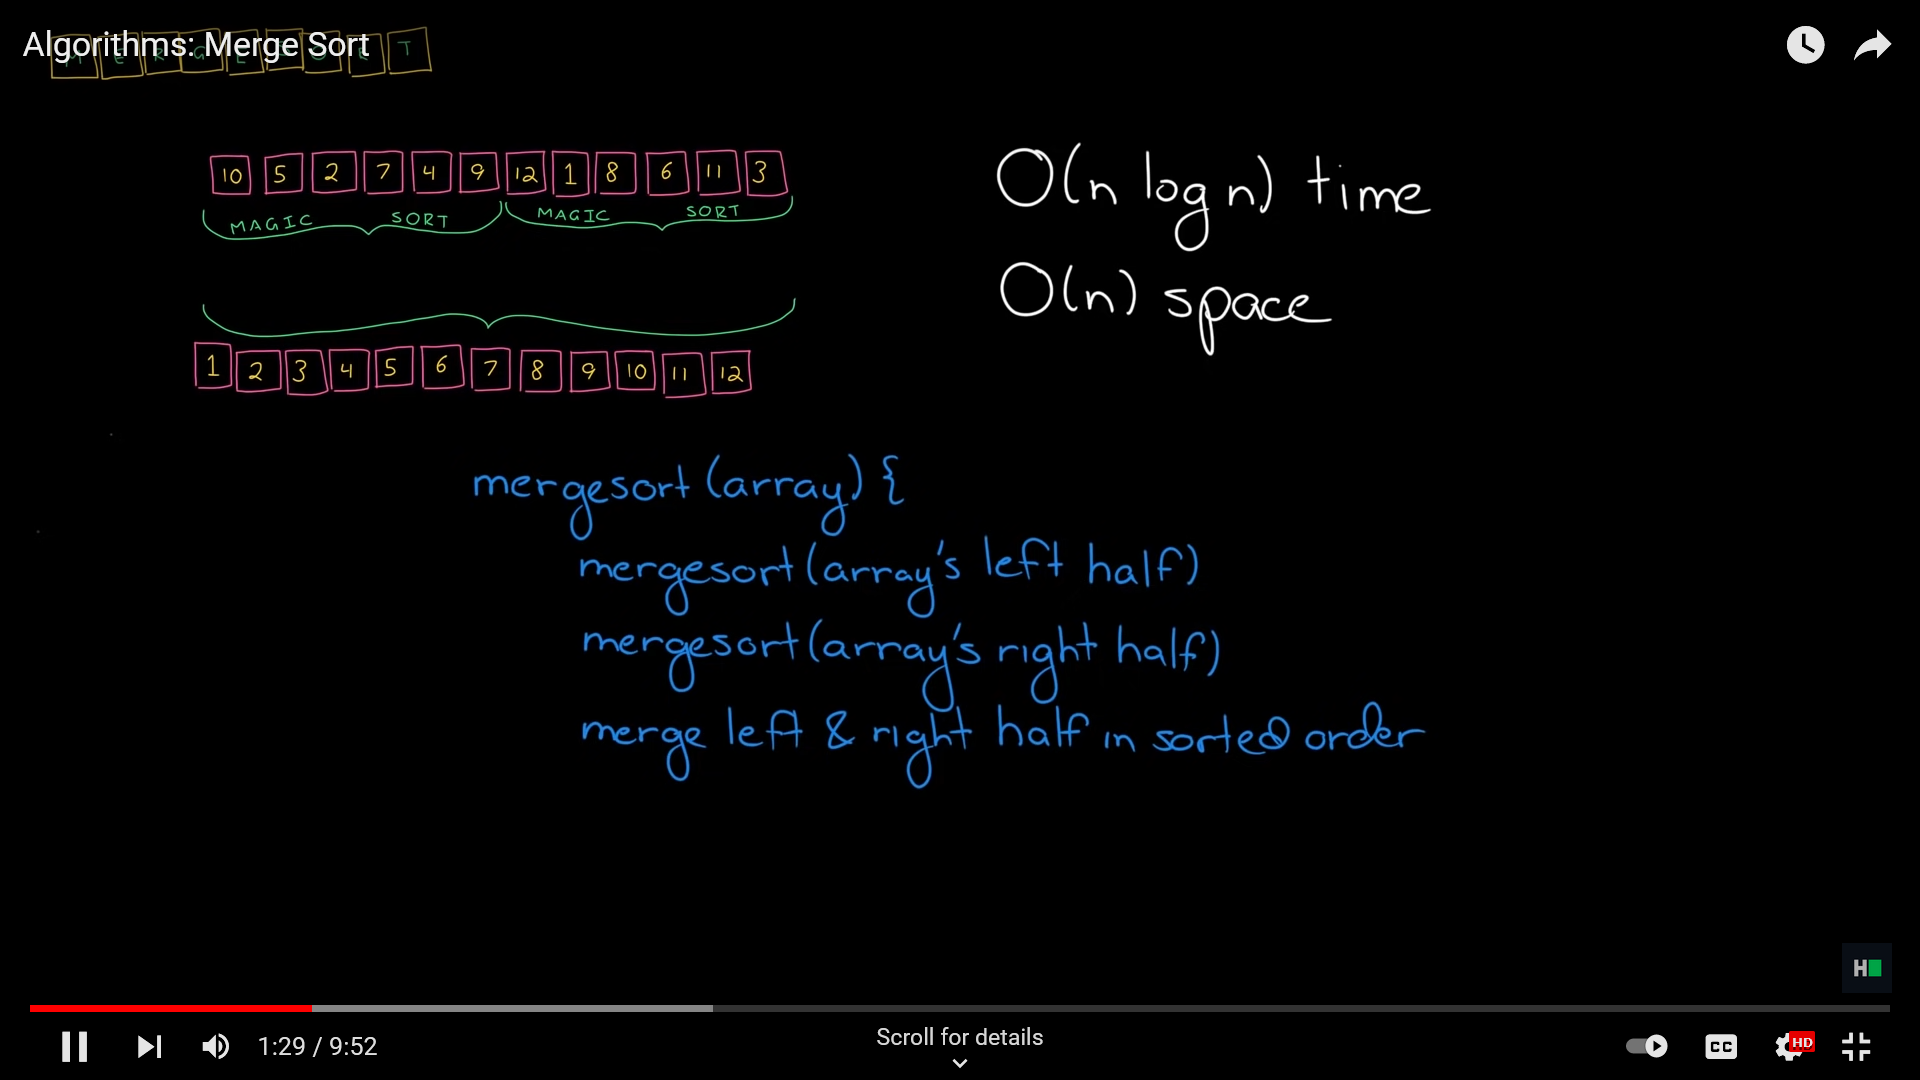 Algorithms: Merge Sort
M E R G E S O R T
10 5 2 7 4 9 12 1 8 6 11 3
MAGIC SORT MAGIC SORT
1 2 3 4 5 6 7 8 9 10 11 12
O(n log n) time
O(n) space
mergesort (array) {
mergesort (array's left half)
mergesort (array's right half)
merge left & right half in sorted order
H
1:29 / 9:52
Scroll for details
CC
HD